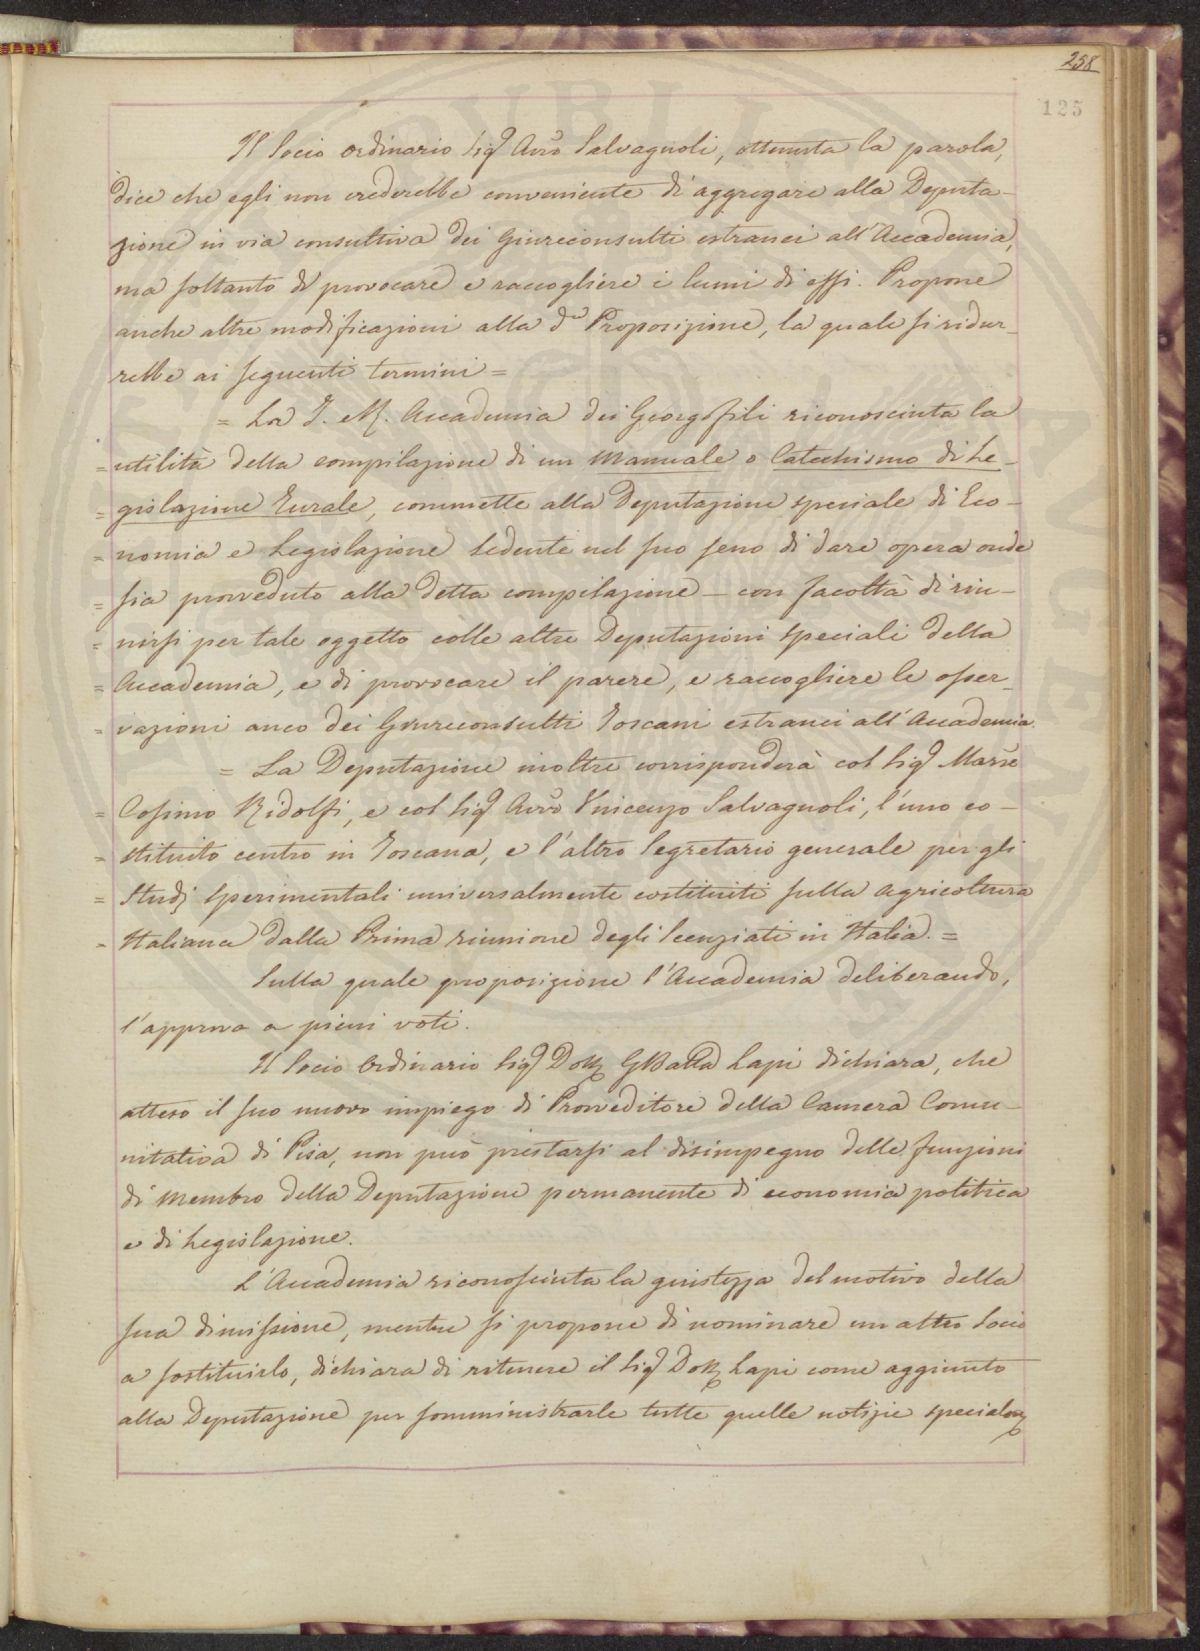 258
125
Il Socio ordinario Sigr Avvo Salvagnoli, ottenuta la parola,
dice che egli non crederebbe conveniente di aggregare alla Deputa-
zione in via consultiva dei Giureconsulti estranei all'Accademia,
ma soltanto di provocare e raccogliere i lumi di essi. Propone
anche altre modificazioni alla da Proposizione, la quale si ridur-
rebbe ai seguenti termini =
= La I. e R. Accademia dei Georgofili riconosciuta la
= utilità della compilazione di un Manuale o Catechismo di Le-
= gislazione Rurale, commette alla Deputazione speciale di Eco-
= nomia e Legislazione sedente nel suo seno di dare opera onde
= sia provveduto alla detta compilazione - con facoltà di riu-
= nirsi per tale oggetto colle altre Deputazioni speciali della
= Accademia, e di provocare il parere, e raccogliere le osser-
= vazioni anco dei Giureconsulti Toscani estranei all'Accademia.
= La Deputazione inoltre corrisponderà col Sigr Marse
= Cosimo Ridolfi, e col Sigr Avvo Vincenzo Salvagnoli, l'uno co-
= stituito centro in Toscana, e l'altro Segretario generale per gli
= Studj sperimentali universalmente costituiti sulla agricoltura
= Italiana dalla Prima riunione degli Scenziati in Italia. =
Sulla quale proposizione l'Accademia deliberando,
l'approva a pieni voti.
Il Socio Ordinario Sigr Dottr GBatta Lapi dichiara, che
atteso il suo nuovo impiego di Provveditore della Camera Comu-
nitativa di Pisa, non può prestarsi al disimpegno delle funzioni
di Membro della Deputazione permanente di economia politica
e di Legislazione.
L'Accademia riconosciuta la giustezza del motivo della
sua dimissione, mentre si propone di nominare un altro Socio
a sostituirlo, dichiara di ritenere il Sigr Dottr Lapi come aggiunto
alla Deputazione per somministrarle tutte quelle notizie